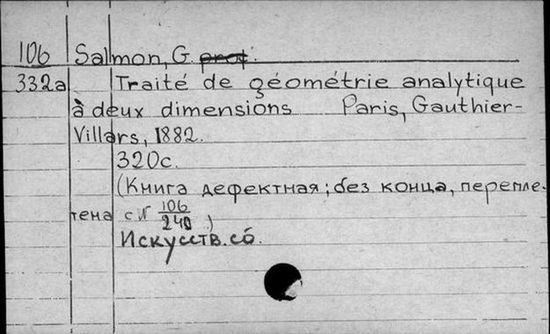 106 Salmon, G. prof.
332a Traité de géométrie analytique
à deux dimensions Paris, Gauthier-
Villars, 1882.
320с.
(Книга дефектная; без конца, перепле-
тена с № 106/240)
Искусств. сб.